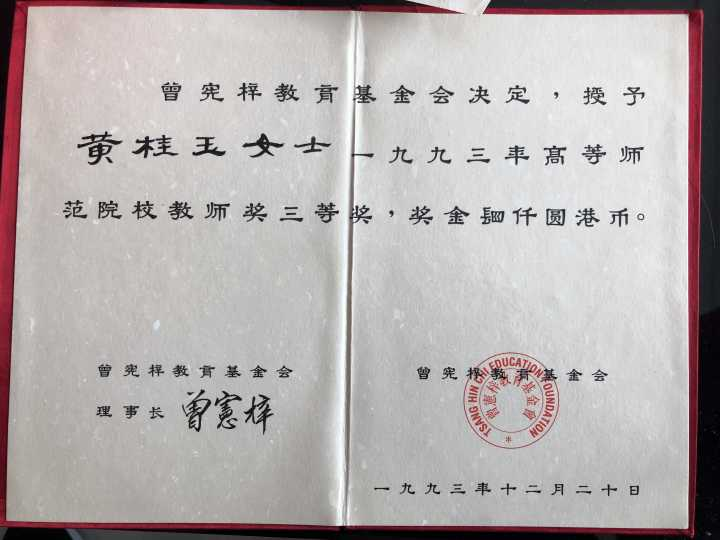 曾宪梓教育基金会决定，授予
黄桂玉女士一九九三年高等师
范院校教师奖三等奖，奖金肆仟圆港币。
曾宪梓教育基金会
理事长 曾憲梓
曾宪梓教育基金会
TSANG HIN CHI EDUCATION FOUNDATION
曾憲梓教育基金會
一九九三年十二月二十日